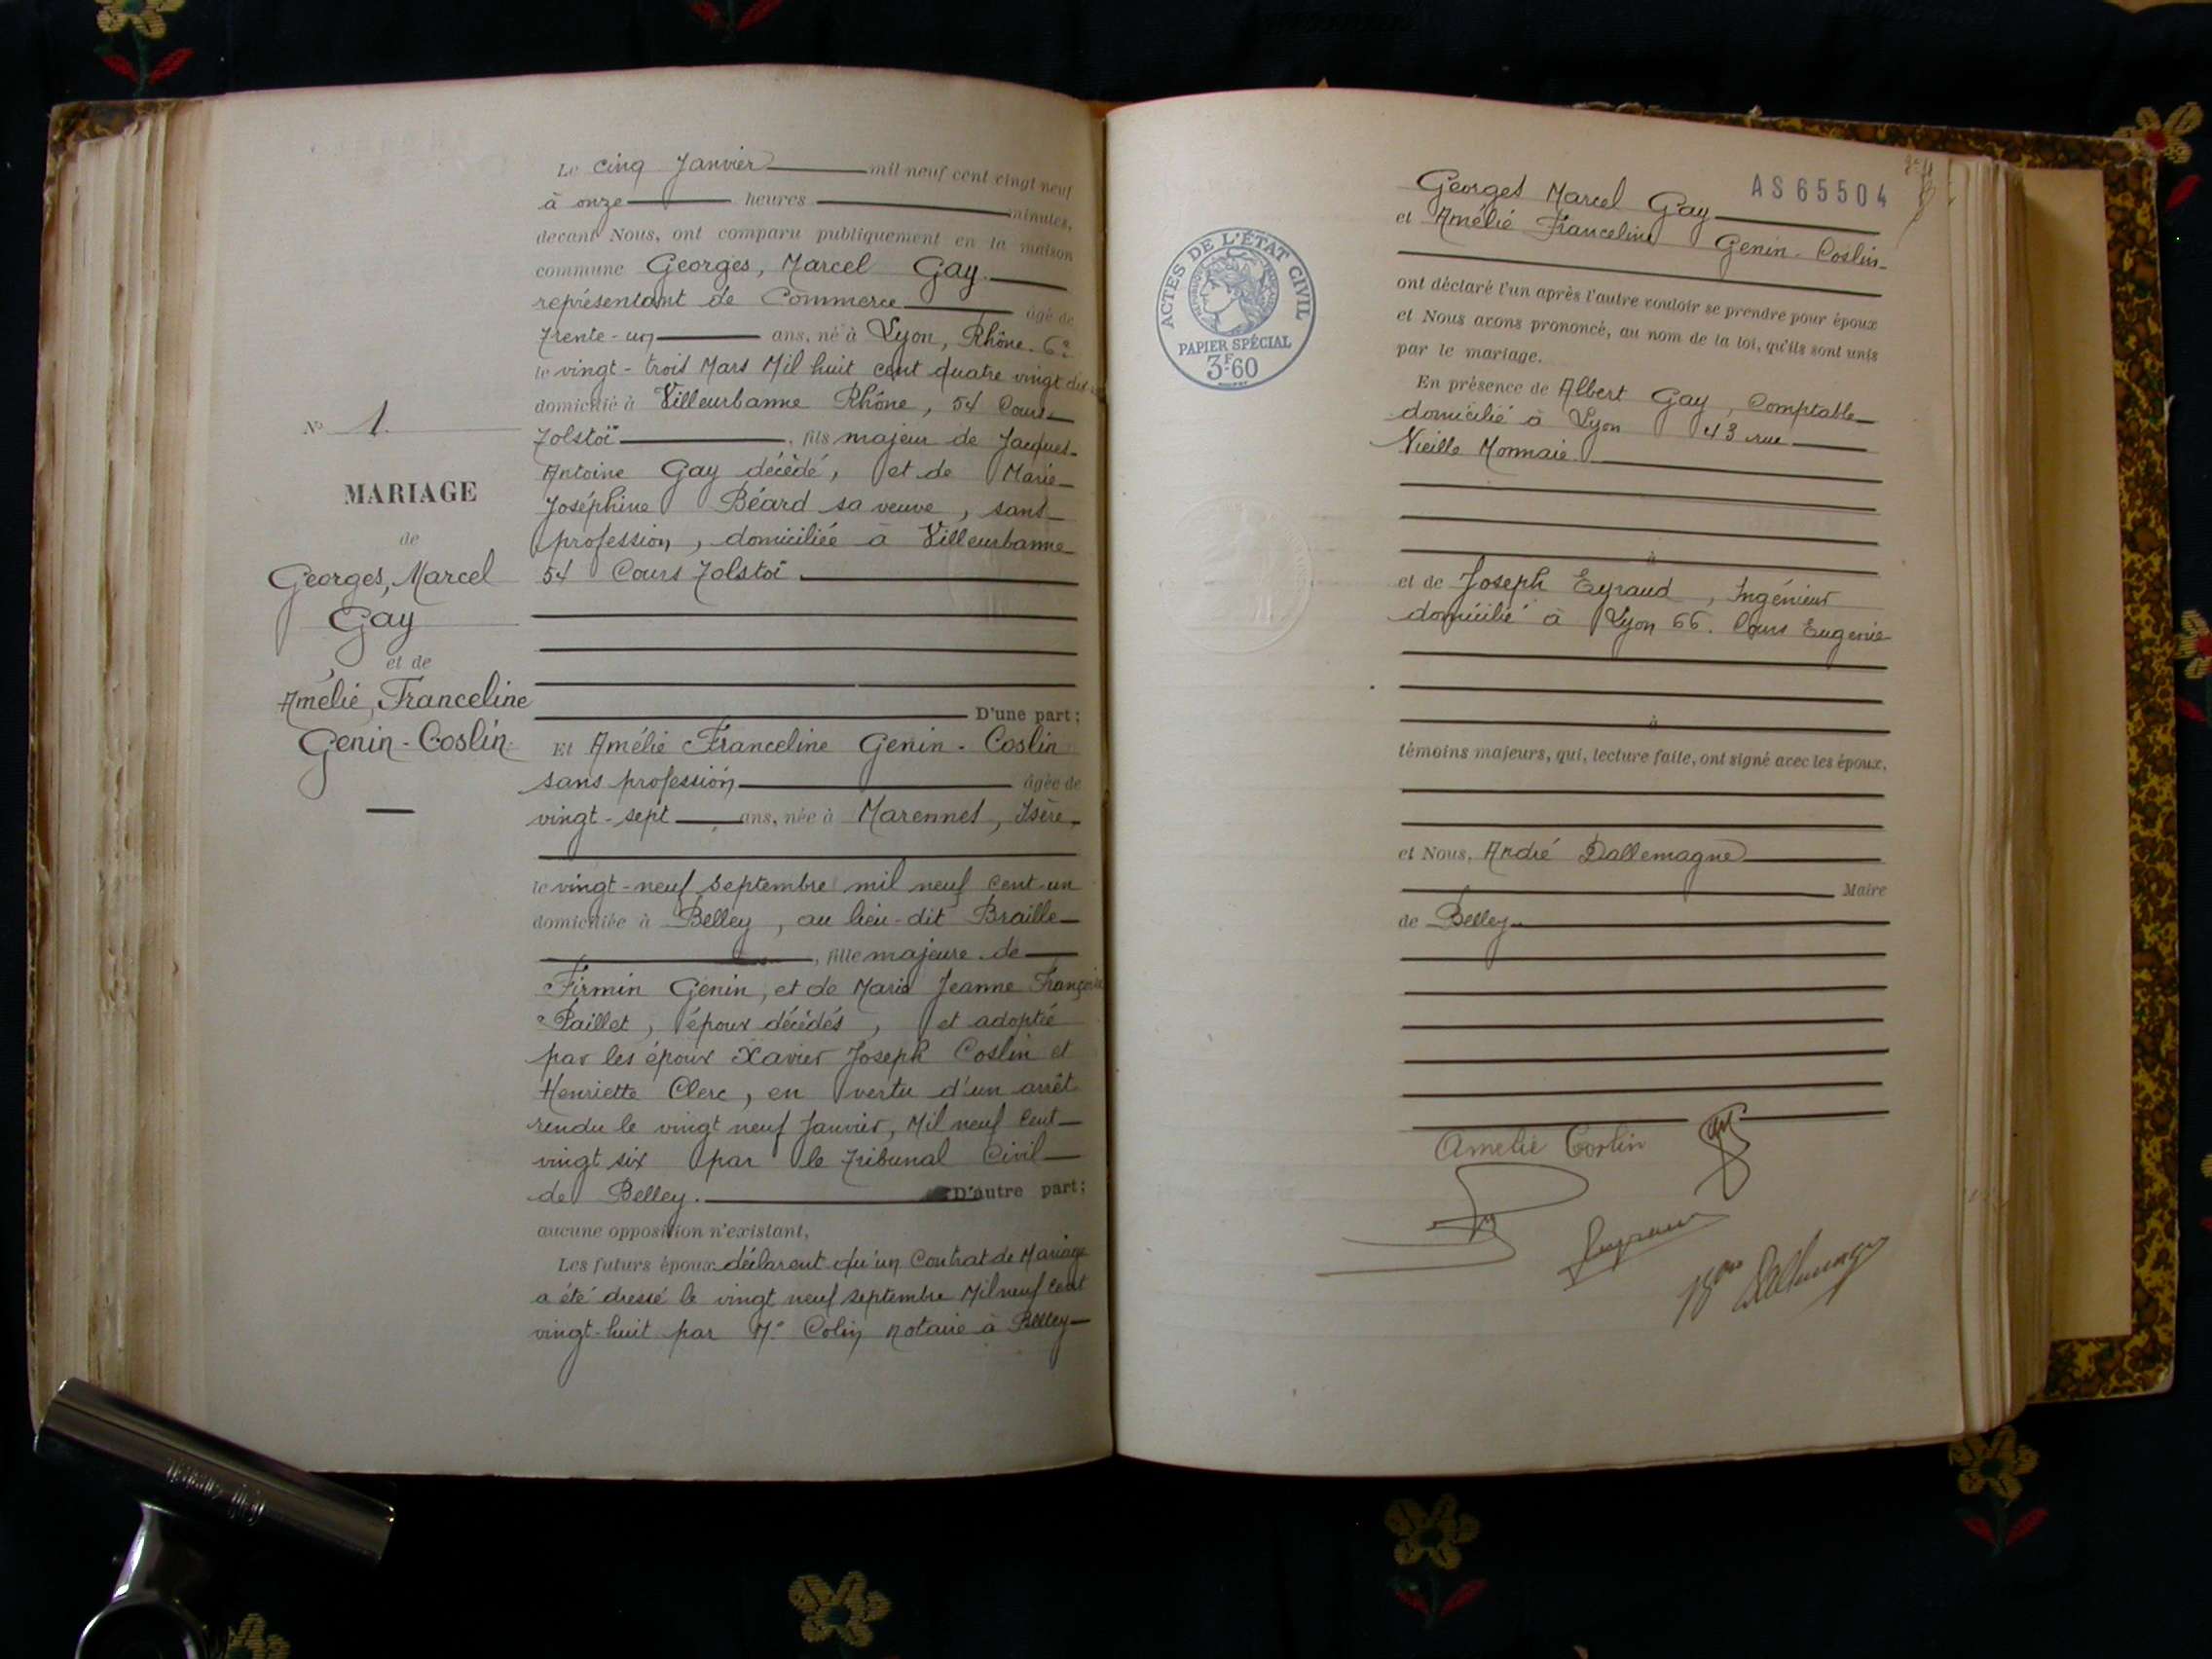 Le cinq Janvier mil neuf cent vingt neuf
à onze heures minutes,
devant Nous, ont comparu publiquement en la maison
commune Georges, Marcel Gay
représentant de Commerce âgé de
trente-un ans, né à Lyon, Rhône. 6e
le vingt-trois Mars Mil huit cent quatre vingt dix
domicilié à Villeurbanne Rhône, 54 Cours
Tolstoï, fils majeur de Jacques-
Antoine Gay décédé, et de Marie
Joséphine Béard sa veuve, sans
profession, domiciliée à Villeurbanne
54 Cours Tolstoï
D'une part;
Et Amélie Franceline Genin-Coslin
sans profession âgée de
vingt-sept ans, née à Marennes, Isère,
le vingt-neuf septembre mil neuf cent un
domiciliée à Belley, au lieu-dit Braille
, fille majeure de
Firmin Genin, et de Marie Jeanne Françoise
Paillet, époux décédés, et adoptée
par les époux Xavier Joseph Coslin et
Henriette Clerc, en vertu d'un arrêt
rendu le vingt neuf Janvier, Mil neuf cent
vingt six par le Tribunal Civil
de Belley. D'autre part;
aucune opposition n'existant,
Les futurs époux déclarent qu'un Contrat de Mariage
a été dressé le vingt neuf septembre Mil neuf cent
vingt-huit par Me Colin notaire à Belley
No 1.
MARIAGE
de
Georges, Marcel
Gay
et de
Amélie, Franceline
Genin-Coslin
AS 65504
Georges Marcel Gay
et Amélie Franceline Genin-Coslin
ont déclaré l'un après l'autre vouloir se prendre pour époux
et Nous avons prononcé, au nom de la loi, qu'ils sont unis
par le mariage.
En présence de Albert Gay, Comptable
domicilié à Lyon 43 rue
Vieille Monnaie
à
et de Joseph Eyraud, Ingénieur
domicilié à Lyon 66. Cours Eugenie
à
témoins majeurs, qui, lecture faite, ont signé avec les époux,
et Nous, André Dallemagne
Maire
de Belley
Amélie Coslin
Eyraud
Bon Dallemagne
ACTES DE L'ÉTAT CIVIL
PAPIER SPÉCIAL
3F.60